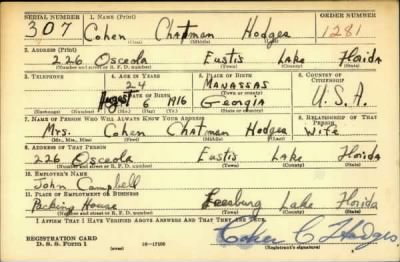 SERIAL NUMBER 1. NAME (Print) ORDER NUMBER
307 Cohen Chatman Hodges 1281
(First) (Middle) (Last)
2. ADDRESS (Print)
226 Osceola Eustis Lake Florida
(Number and street or R. F. D. number) (Town) (County) (State)
3. TELEPHONE 4. AGE IN YEARS 5. PLACE OF BIRTH 6. COUNTRY OF CITIZENSHIP
24 Manassas
DATE OF BIRTH (Town or county)
August 6 1916 Georgia U.S.A.
(Exchange) (Number) (Mo.) (Day) (Yr.) (State or country)
7. NAME OF PERSON WHO WILL ALWAYS KNOW YOUR ADDRESS 8. RELATIONSHIP OF THAT PERSON
Mrs. Cohen Chatman Hodges Wife
(Mr., Mrs., Miss) (First) (Middle) (Last)
9. ADDRESS OF THAT PERSON
226 Osceola Eustis Lake Florida
(Number and street or R. F. D. number) (Town) (County) (State)
10. EMPLOYER'S NAME
John Campbell
11. PLACE OF EMPLOYMENT OR BUSINESS
Packing House Leesburg Lake Florida
(Number and street or R. F. D. number) (Town) (County) (State)
I AFFIRM THAT I HAVE VERIFIED ABOVE ANSWERS AND THAT THEY ARE TRUE.
REGISTRATION CARD
D. S. S. Form 1 (over) 16-17105 (Registrant's signature)